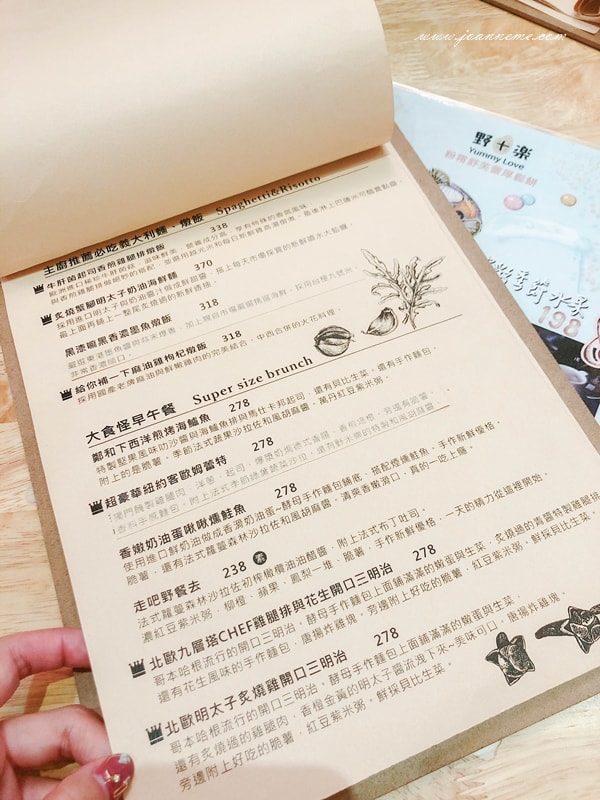 www.joanneme.com
野十楽
Yummy Love
198
主廚推薦必吃義大利麵、燉飯 Spaghetti&Risotto
牛肝菌起司香煎雞腿排燉飯 338
炙燒蟹腳明太子奶油海鮮麵 370
採用進口明太子與奶油醬汁
最上面再鋪上一整尾炙燒過的新鮮香橙
黑漆嘛黑香濃墨魚燉飯 318
非常香濃順口。
給你補一下麻油雞枸杞燉飯 318
採用國產老牌麻油與鮮嫩雞肉的完美結合，中西合併的火花料理。
大食怪早午餐 Super size brunch
鄭和下西洋煎烤海鱸魚 278
特製堅果風味叻沙醬與海鱸魚排與馬仕卡邦起司，還有貝比生菜，還有手作麵包。
附上的是脆薯，季節法式蔬果沙拉佐和風胡麻醬。萬丹紅豆紫米粥。
超豪華紐約客歐姆蕾特 278
香嫩奶油蛋啾啾燻鮭魚 278
使用進口鮮奶油做成香滑奶油蛋~酵母手作麵包鋪底，搭配煙燻鮭魚，手作新鮮優格，
脆薯，還有法式蘿蔓森林沙拉佐和風胡麻醬，清爽香嫩滑口，真的一吃上癮。
走吧野餐去 238 素
法式蘿蔓森林沙拉佐初榨橄欖油油醋醬，附上法式布丁吐司。
濃紅豆紫米粥，柳橙，蘋果，鳳梨一堆，脆薯，手作新鮮優格，一天的精力從這裡開始。
北歐九層塔CHEF雞腿排與花生開口三明治 278
哥本哈根流行的開口三明治。酵母手作麵包上面鋪滿滿的嫩蛋與生菜，炙燒過的青醬特製雞腿排
還有花生風味的手作麵包，唐揚炸雞塊。旁邊附上好吃的脆薯，紅豆紫米粥，鮮採貝比生菜。
北歐明太子炙燒雞開口三明治 278
哥本哈根流行的開口三明治。酵母手作麵包上面鋪滿滿的嫩蛋與生菜。
還有炙燒過的雞腿肉，香橙金黃的明太子醬流洩下來~美味可口，唐揚炸雞塊，
旁邊附上好吃的脆薯，紅豆紫米粥。鮮採貝比生菜。